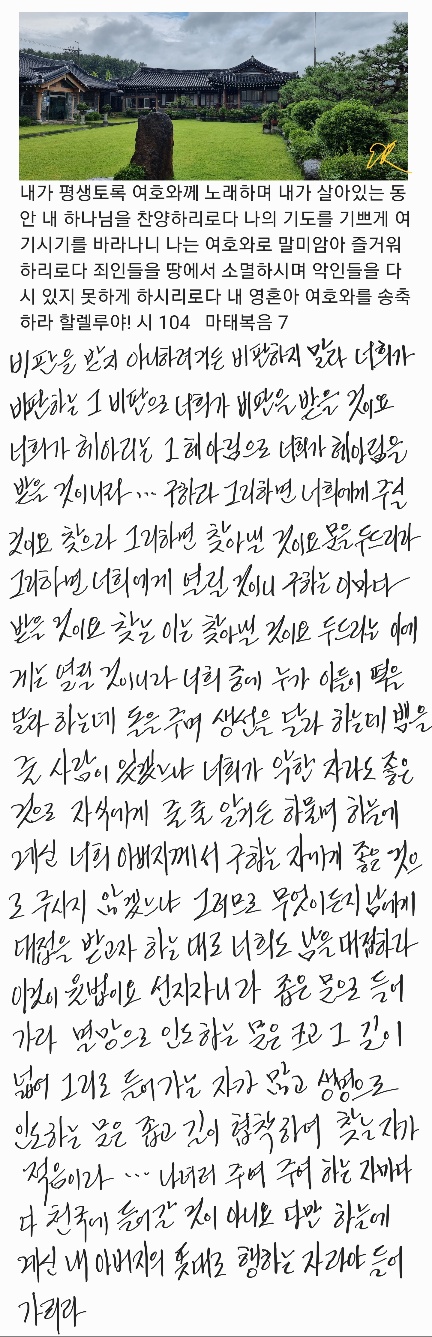 내가 평생토록 여호와께 노래하며 내가 살아있는 동
안 내 하나님을 찬양하리로다 나의 기도를 기쁘게 여
기시기를 바라나니 나는 여호와로 말미암아 즐거워
하리로다 죄인들을 땅에서 소멸하시며 악인들을 다
시 있지 못하게 하시리로다 내 영혼아 여호와를 송축
하라 할렐루야! 시 104 마태복음 7
비판을 받지 아니하려거든 비판하지 말라 너희가
비판하는 그 비판으로 너희가 비판을 받을 것이요
너희가 헤아리는 그 헤아림으로 너희가 헤아림을
받을 것이니라 … 구하라 그리하면 너희에게 주실
것이요 찾으라 그리하면 찾아낼 것이요 문을 두드리라
그리하면 너희에게 열릴 것이니 구하는 이마다
받을 것이요 찾는 이는 찾아낼 것이요 두드리는 이에
게는 열릴 것이니라 너희 중에 누가 아들이 떡을
달라 하는데 돌을 주며 생선을 달라 하는데 뱀을
줄 사람이 있겠느냐 너희가 악한 자라도 좋은
것으로 자식에게 줄 줄 알거든 하물며 하늘에
계신 너희 아버지께서 구하는 자에게 좋은 것으
로 주시지 않겠느냐 그러므로 무엇이든지 남에게
대접을 받고자 하는 대로 너희도 남을 대접하라
이것이 율법이요 선지자니라 좁은 문으로 들어
가라 멸망으로 인도하는 문은 크고 그 길이
넓어 그리로 들어가는 자가 많고 생명으로
인도하는 문은 좁고 길이 협착하여 찾는 자가
적음이라 … 나더러 주여 주여 하는 자마다
다 천국에 들어갈 것이 아니요 다만 하늘에
계신 내 아버지의 뜻대로 행하는 자라야 들어
가리라